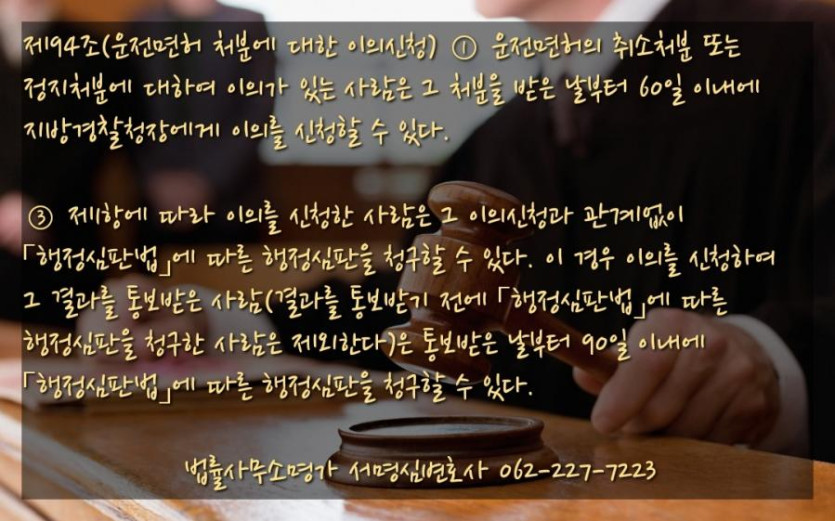 제94조(운전면허 처분에 대한 이의신청) ① 운전면허의 취소처분 또는
정지처분에 대하여 이의가 있는 사람은 그 처분을 받은 날부터 60일 이내에
지방경찰청장에게 이의를 신청할 수 있다.
③ 제1항에 따라 이의를 신청한 사람은 그 이의신청과 관계없이
「행정심판법」에 따른 행정심판을 청구할 수 있다. 이 경우 이의를 신청하여
그 결과를 통보받은 사람(결과를 통보받기 전에 「행정심판법」에 따른
행정심판을 청구한 사람은 제외한다)은 통보받은 날부터 90일 이내에
「행정심판법」에 따른 행정심판을 청구할 수 있다.
법률사무소명가 서명심변호사 062-227-7223